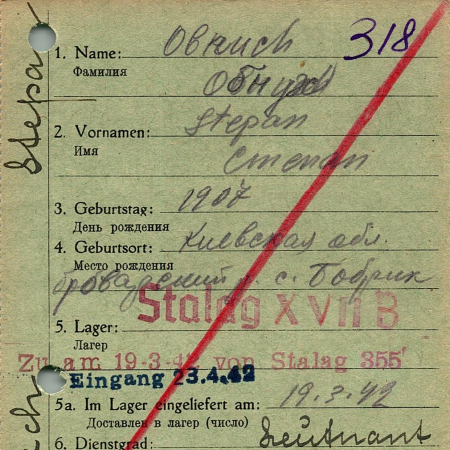 318
1. Name:
Фамилия
2. Vornamen: Stepan
Имя Степан
3. Geburtstag: 1907
День рождения
4. Geburtsort: Киевская обл.
Место рождения
броварский р. с. Бобрик
Stalag XVII B
5. Lager:
Лагер
Zu am 19-3-42 von Stalag 355
Eingang 23.4.42
5a. Im Lager eingeliefert am: 19.3.42
Доставлен в лагер (число)
6. Dienstgrad: Leutnant